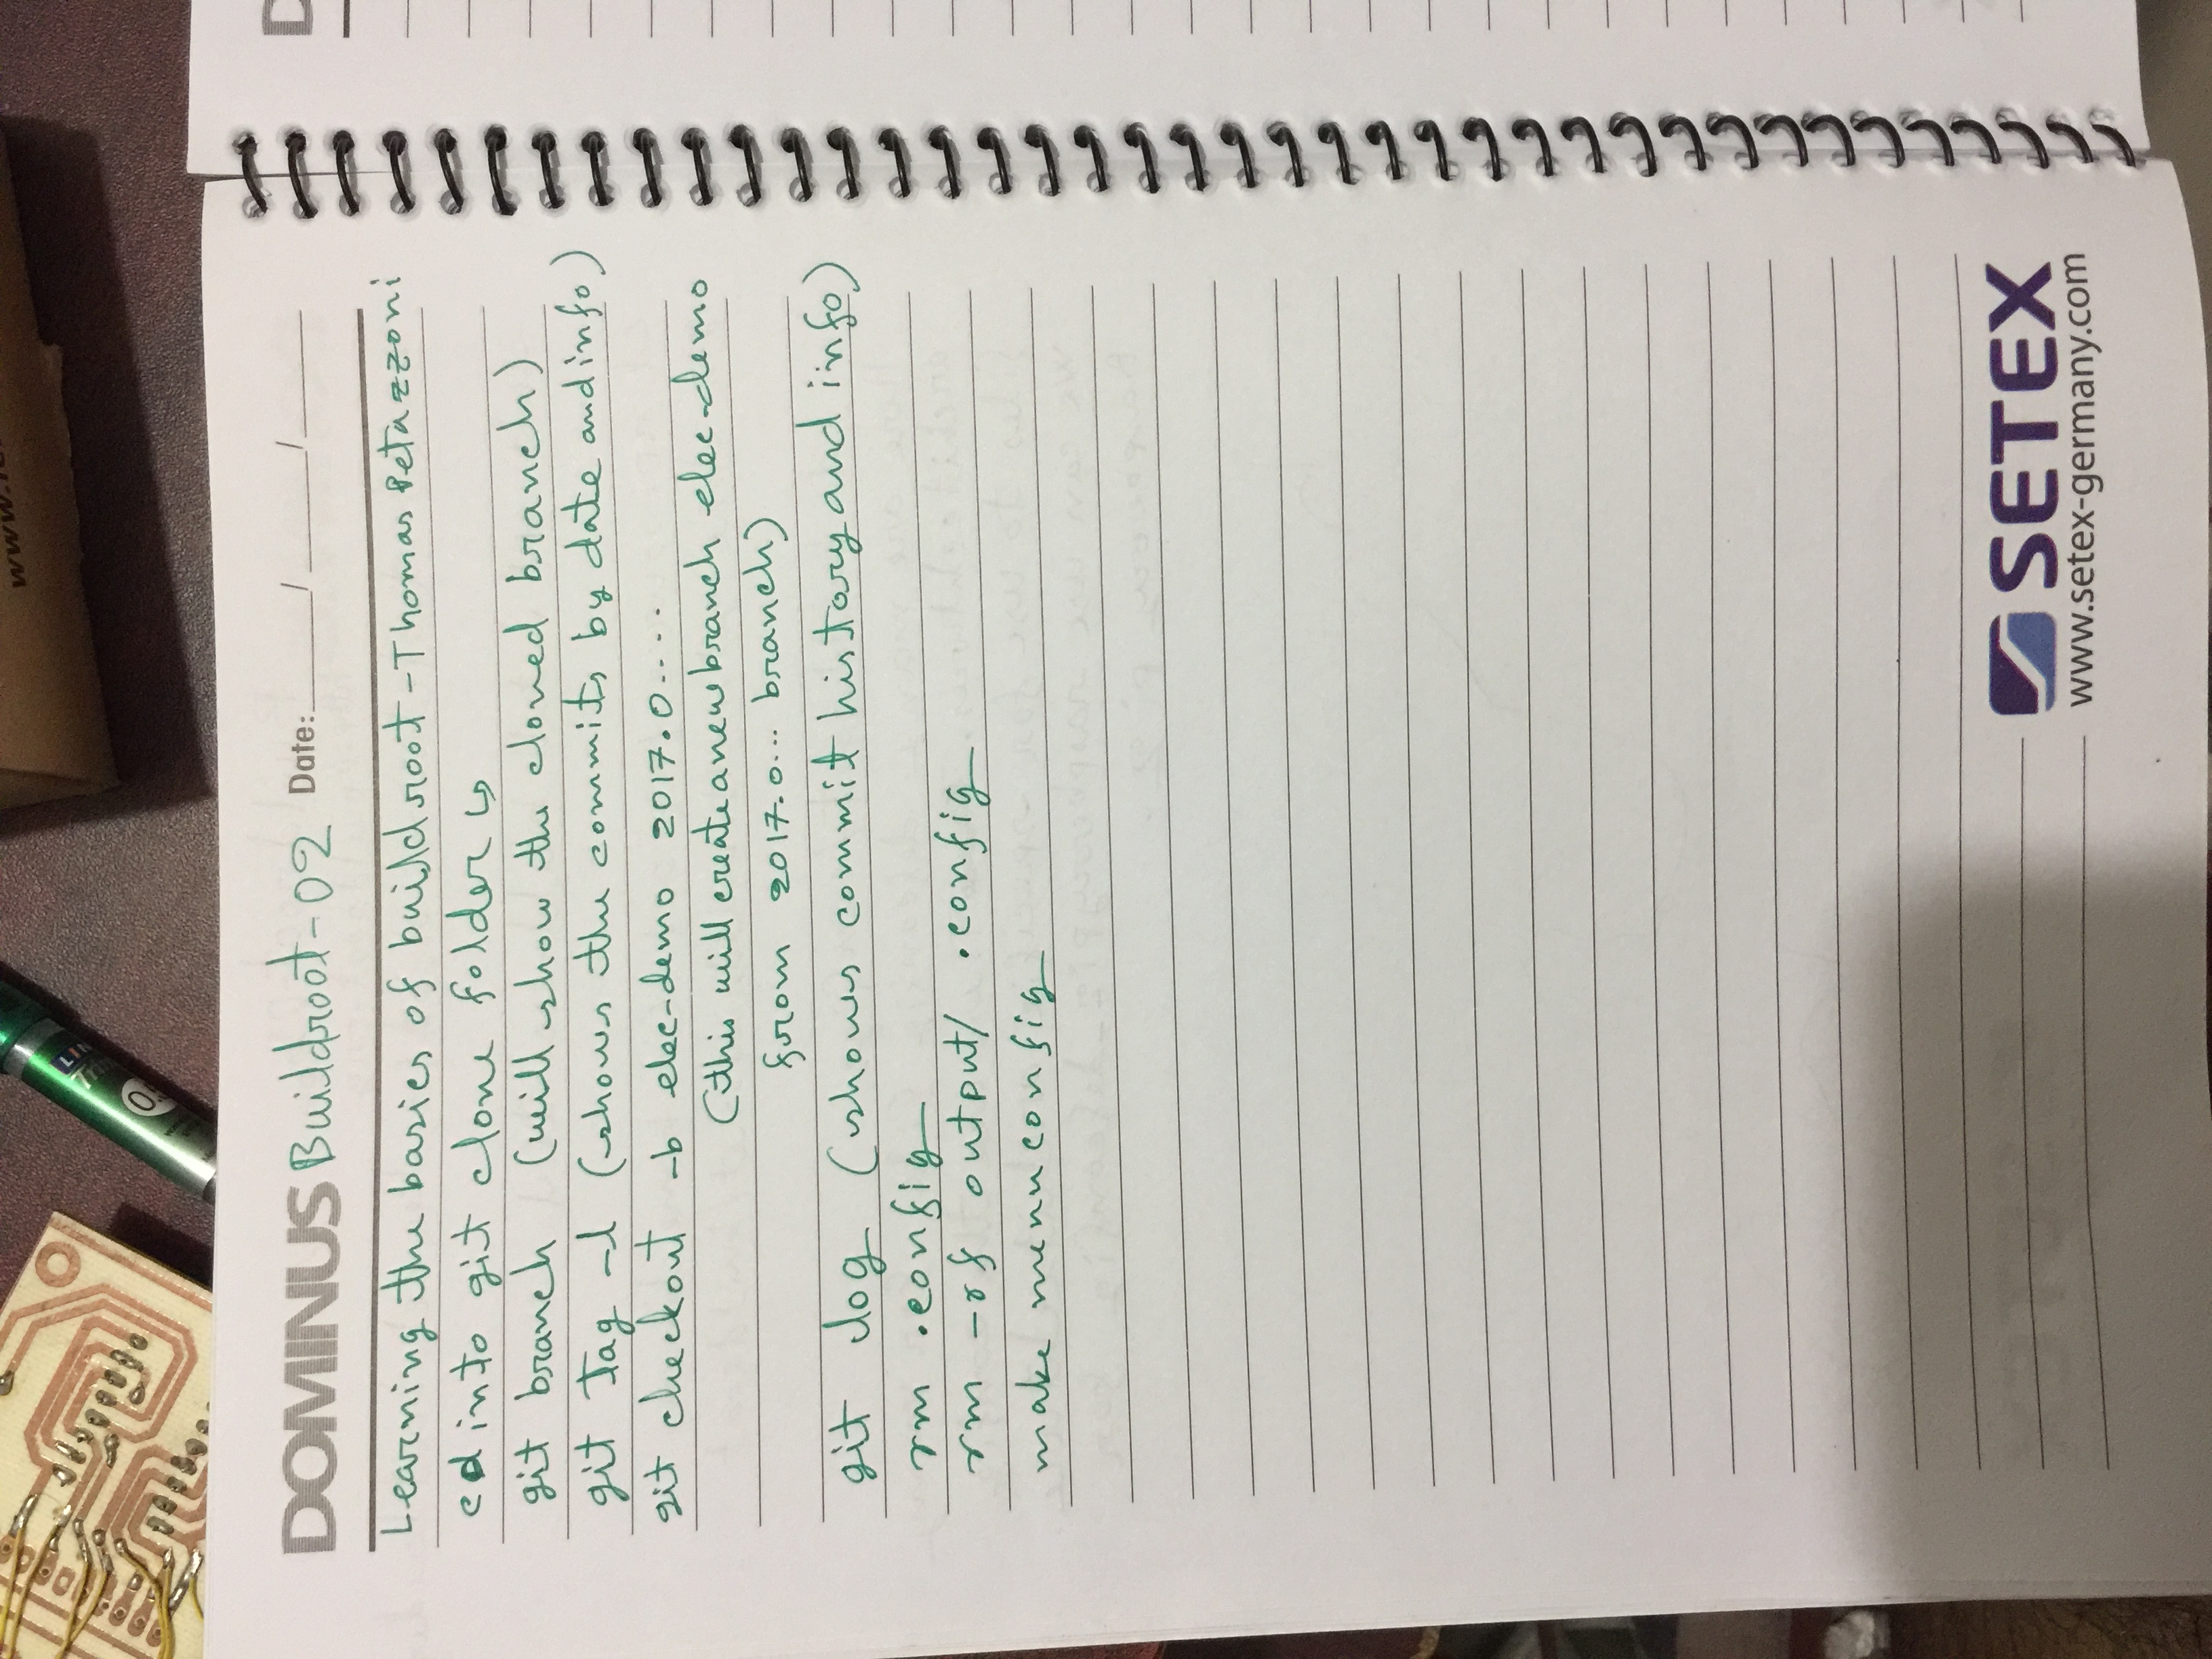 www.
LI
0.
DOMINUS Buildroot-02 Date:____/____/____
Learning the basics of buildroot-Thomas Petazzoni
cd into git clone folder ↳
git branch (will show the cloned branch)
git Tag -l (shows the commits by date and info)
git checkout -b elec-demo 2017.0....
(this will create a new branch elec-demo
from 2017.0... branch)
git log (shows commit history and info)
rm .config
rm -rf output/ .config
make menuconfig
SETEX
www.setex-germany.com
D